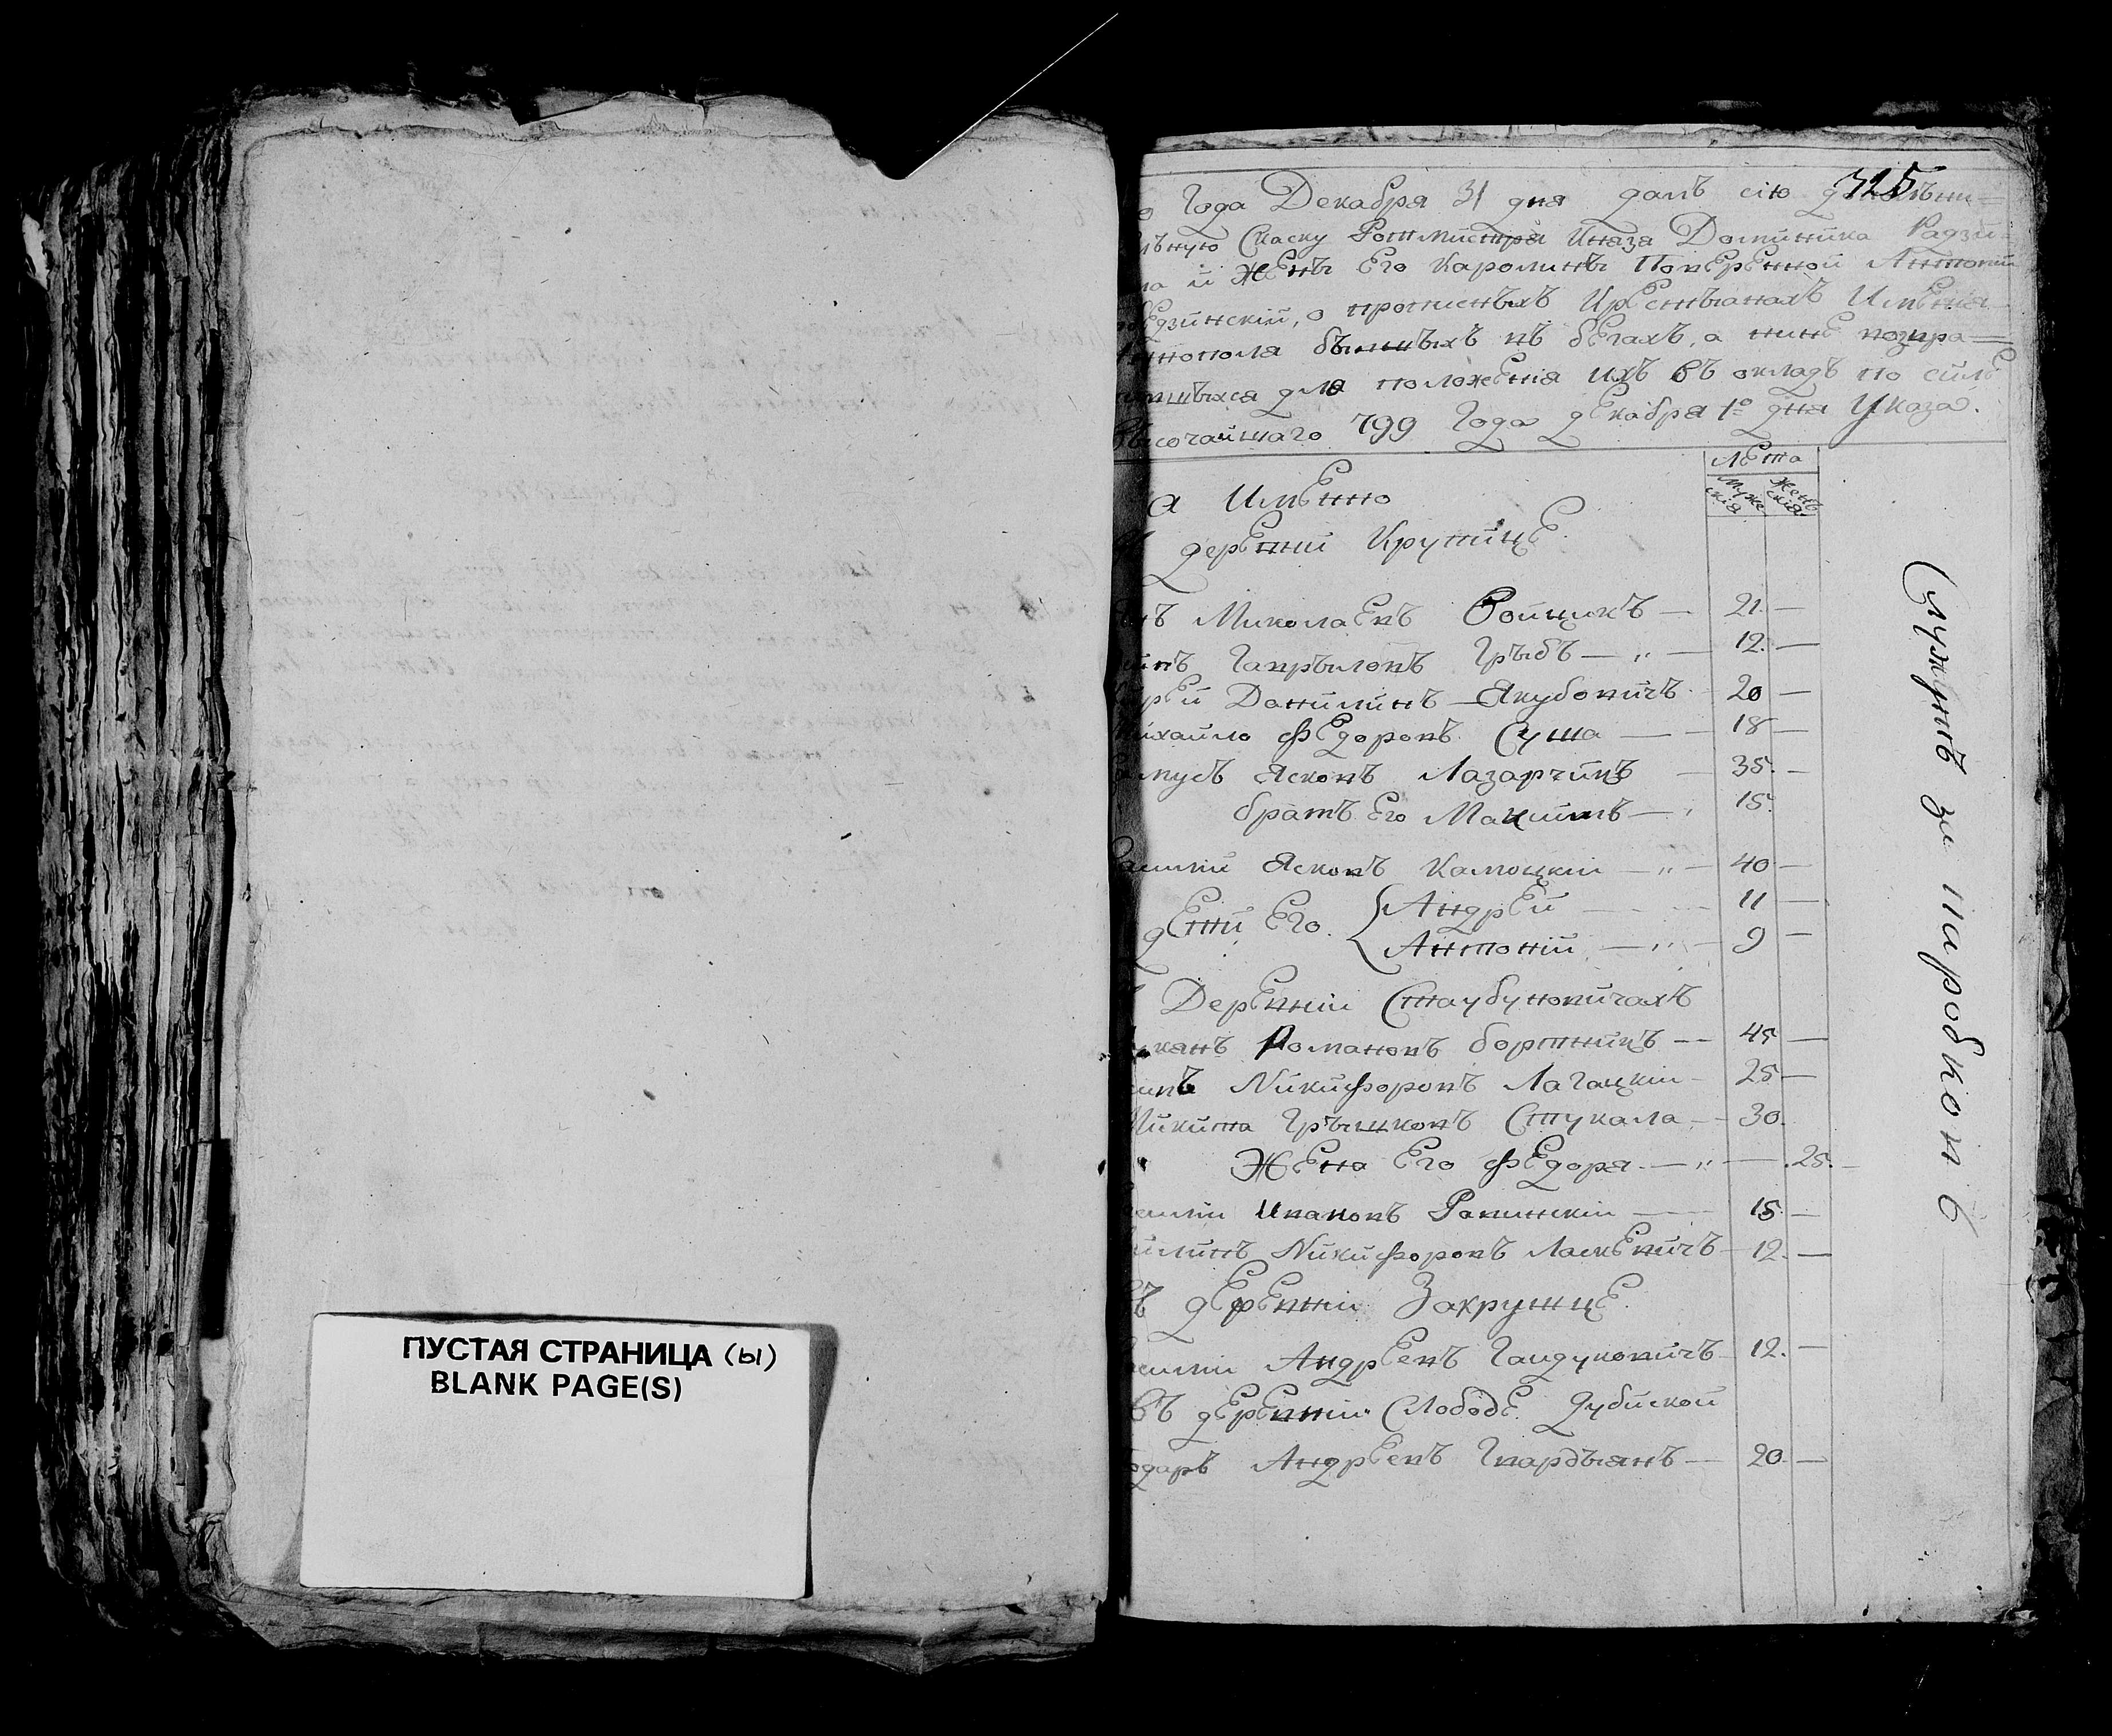 ПУСТАЯ СТРАНИЦА (ы)
BLANK PAGE(S)
325
Года Декабря 31 дня далъ сію
Скаску Ротмистра Князя Доминика Радзи-
и женѣ Его Каролинѣ Поверенной Антоній
о прописныхъ Крестьянахъ Именія
бывшыхъ въ бегахъ, а нине возвра-
для положенія ихъ въ окладъ по силе
Высочайшаго 799 Года декабря 1го дня Указа.
Лета
Муже
скія
Женъ
скія
а Именно
деревни Крупице
Миколаевъ Войщикъ — 21. —
Гаврыловъ Грыбъ — " — 12. —
Данилинъ — Якубовичъ 20 —
Михайло Федоровъ Суша — 18 —
Ясковъ Лазарчикъ — 35. —
братъ Его Максимъ — 15.
Ясковъ Камоцкіи — " — 40 —
дети Его { Андрей — 11 —
Антоній — " — 9 —
Деревніи Стаубуновичахъ
Романовъ бортникъ — 45 —
Никифоровъ Лагацкіи — 25 —
Микита Грышковъ Стукала — 30.
Жена Его Федора — " — 25. —
Ивановъ Равинскіи — 15. —
Никифоровъ Ласкевичъ — 12. —
деревніи Закрутице
Андреевъ Гайдуковичъ — 12. —
въ деревніи Слободе Дубиской
Андреевъ Гвардыянъ — 20. —
Служутъ за паробковъ